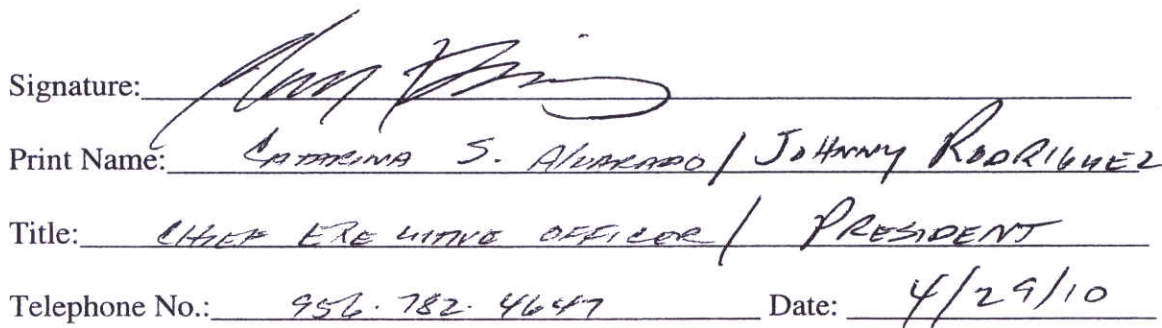 Signature:
Print Name: CATARINA S. ALVARADO / JOHNNY RODRIGUEZ
Title: CHIEF EXECUTIVE OFFICER / PRESIDENT
Telephone No.: 956.782.4647 Date: 4/29/10